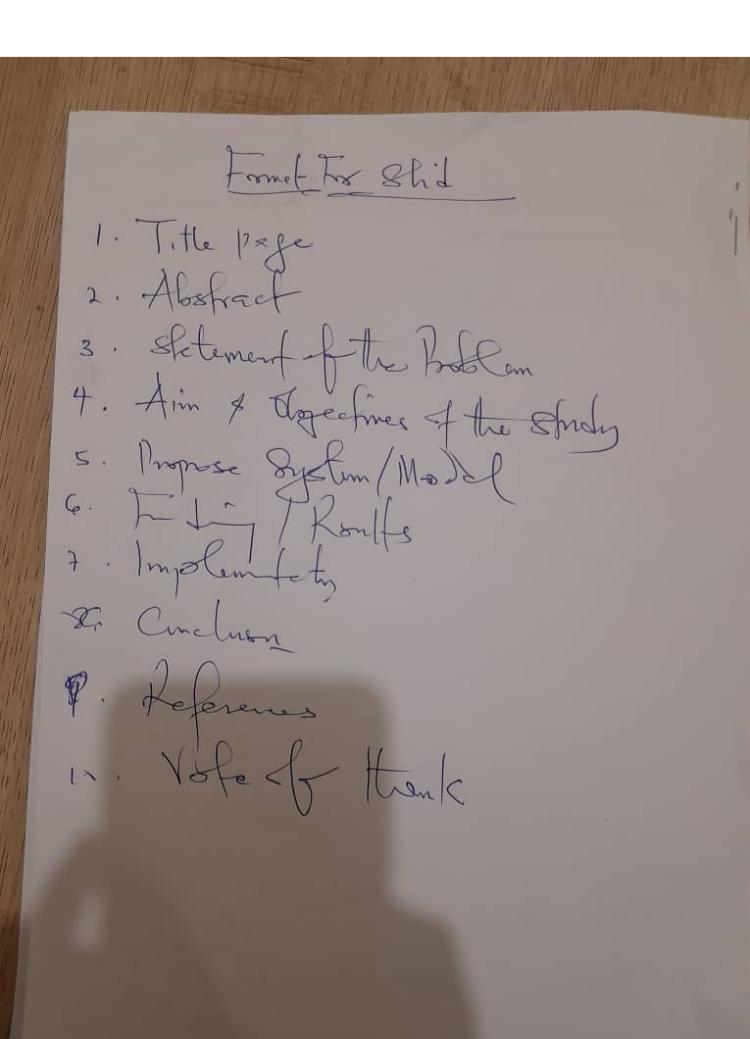 Format For Slid
1. Title page
2. Abstract
3. Statement of the Problem
4. Aim & Objectives of the study
5. Propose System/Model
6. Finding / Results
7. Implementation
8. Conclusion
9. References
10. Vote of thank